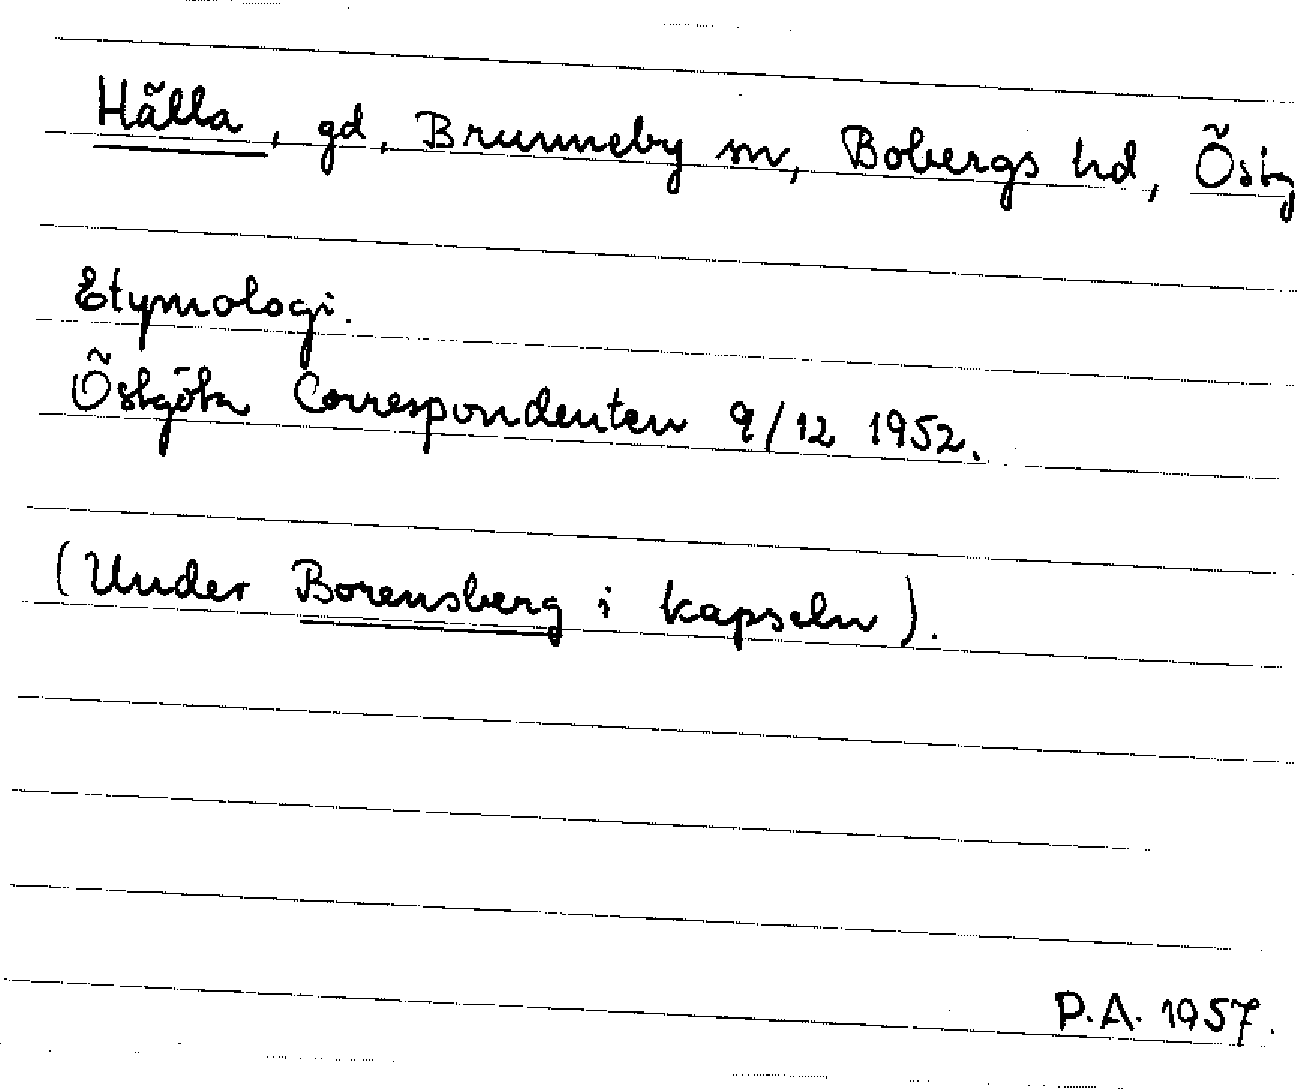 Hälla, gd, Brunneby sn, Bobergs hd, Östg
Etymologi.
Östgöta Correspondenten 9/12 1952.
(Under Borensberg i kapseln).
P.A. 1957.